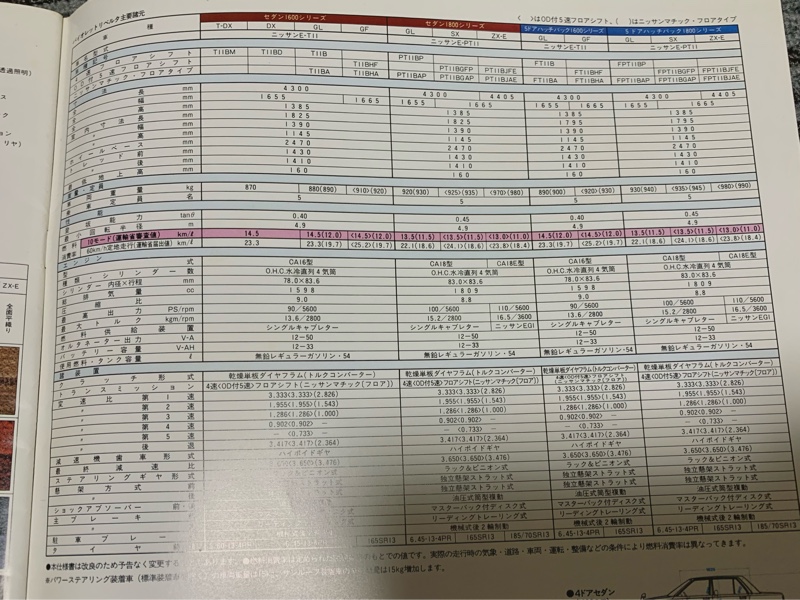 イオレットリベルタ主要諸元
〈 〉はOD付5速フロアシフト、( )はニッサンマチック・フロアタイプ
セダン1600シリーズ セダン1800シリーズ 5ドアハッチバック1600シリーズ 5ドアハッチバック1800シリーズ
車 種 T-DX DX GL GF GL SX ZX-E GL GF GL SX ZX-E
ニッサンE-T11 ニッサンE-PT11 ニッサンE-T11 ニッサンE-PT11
T11BM T11BD T11B PT11BP FT11B FPT11BP
T11BHF PT11BGFP PT11BJFE FT11BHF FPT11BGFP FPT11BJFE
T11BA T11BHA PT11BAP PT11BGAP PT11BJAE FT11BA FT11BHA FPT11BAP FPT11BGAP FPT11BJAE
長 mm 4300 4300 4405 4300 4300 4405
幅 mm 1655 1665 1655 1665 1655 1665 1655 1665
高 mm 1385 1385 1385 1385
室内寸法 長 mm 1825 1825 1795 1795
幅 mm 1390 1390 1390 1390
高 mm 1145 1145 1145 1145
ホイールベース mm 2470 2470 2470 2470
トレッド 前 mm 1430 1430 1430 1430
後 mm 1410 1410 1410 1410
最低地上高 mm 160 160 160 160
車両重量 kg 870 880(890) 〈910〉(920) 920(930) 〈925〉(935) 〈970〉(980) 890(900) 〈920〉(930) 930(940) 〈935〉(945) 〈980〉(990)
乗車定員 名 5 5 5 5
登坂能力 tanθ 0.40 0.45 0.40 0.45
最小回転半径 m 4.9 4.9 4.9 4.9
燃料消費率 10モード(運輸省審査値) km/ℓ 14.5 14.5(12.0) 〈14.5〉(12.0) 13.5(11.5) 〈13.5〉(11.5) 〈13.0〉(11.0) 14.5(12.0) 〈14.5〉(12.0) 13.5(11.5) 〈13.5〉(11.5) 〈13.0〉(11.0)
60km/h定地走行(運輸省届出値) km/ℓ 23.3 23.3(19.7) 〈25.2〉(19.7) 22.1(18.6) 〈24.1〉(18.6) 〈23.8〉(18.4) 23.3(19.7) 〈25.2〉(19.7) 22.1(18.6) 〈24.1〉(18.6) 〈23.8〉(18.4)
エンジン
型式 CA16型 CA18型 CA18E型 CA16型 CA18型 CA18E型
種類・シリンダー数 O.H.C.水冷直列4気筒 O.H.C.水冷直列4気筒 O.H.C.水冷直列4気筒 O.H.C.水冷直列4気筒
シリンダー内径×行程 mm 78.0×83.6 83.0×83.6 78.0×83.6 83.0×83.6
総排気量 cc 1598 1809 1598 1809
圧縮比 9.0 8.8 9.0 8.8
最高出力 PS/rpm 90/5600 100/5600 110/5600 90/5600 100/5600 110/5600
最大トルク kgm/rpm 13.6/2800 15.2/2800 16.5/3600 13.6/2800 15.2/2800 16.5/3600
燃料供給装置 シングルキャブレター シングルキャブレター ニッサンEGI シングルキャブレター シングルキャブレター ニッサンEGI
オルタネーター出力 V-A 12-50 12-50 12-50 12-50
バッテリー容量 V-AH 12-33 12-33 12-33 12-33
使用燃料・タンク容量 ℓ 無鉛レギュラーガソリン・54 無鉛レギュラーガソリン・54 無鉛レギュラーガソリン・54 無鉛レギュラーガソリン・54
装置
クラッチ形式 乾燥単板ダイヤフラム(トルクコンバーター) 乾燥単板ダイヤフラム(トルクコンバーター) 乾燥単板ダイヤフラム(トルクコンバーター) 乾燥単板ダイヤフラム(トルクコンバーター)
トランスミッション 4速〈OD付5速〉フロアシフト(ニッサンマチック(フロア)) 4速〈OD付5速〉フロアシフト(ニッサンマチック(フロア)) 4速〈OD付5速〉フロアシフト(ニッサンマチック(フロア)) 4速〈OD付5速〉フロアシフト(ニッサンマチック(フロア))
変速比 第1速 3.333〈3.333〉(2.826) 3.333〈3.333〉(2.826) 3.333〈3.333〉(2.826) 3.333〈3.333〉(2.826)
第2速 1.955〈1.955〉(1.543) 1.955〈1.955〉(1.543) 1.955〈1.955〉(1.543) 1.955〈1.955〉(1.543)
第3速 1.286〈1.286〉(1.000) 1.286〈1.286〉(1.000) 1.286〈1.286〉(1.000) 1.286〈1.286〉(1.000)
第4速 0.902〈0.902〉(-) 0.902〈0.902〉(-) 0.902〈0.902〉(-) 0.902〈0.902〉(-)
第5速 -〈0.733〉- -〈0.733〉- -〈0.733〉- -〈0.733〉-
後退 3.417〈3.417〉(2.364) 3.417〈3.417〉(2.364) 3.417〈3.417〉(2.364) 3.417〈3.417〉(2.364)
減速機歯車形式 ハイポイドギヤ ハイポイドギヤ ハイポイドギヤ ハイポイドギヤ
最終減速比 3.650〈3.650〉(3.476) 3.650〈3.650〉(3.476) 3.650〈3.650〉(3.476)
ステアリングギヤ形式 ラック&ピニオン式 ラック&ピニオン式 ラック&ピニオン式
懸架方式 前 独立懸架ストラット式 独立懸架ストラット式 独立懸架ストラット式
独立懸架ストラット式 独立懸架ストラット式 独立懸架ストラット式
ショックアブソーバー 油圧式筒型複動 油圧式筒型複動 油圧式筒型複動
主ブレーキ マスターバック付ディスク式 マスターバック付ディスク式 マスターバック付ディスク式
リーディングトレーリング式 リーディングトレーリング式 リーディングトレーリング式
駐車ブレーキ 機械式後2輪制動 機械式後2輪制動 機械式後2輪制動
タイヤ 165SR13 6.45-13-4PR 165SR13 185/70SR13 6.45-13-4PR 165SR13 6.45-13-4PR 165SR13 185/70SR13
●本仕様書は改良のため予告なく変更する
もとでの値です。実際の走行時の気象・道路・車両・運転・整備などの条件により燃料消費率は異なってきます。
※パワーステアリング装着車(標準装備
は15kg増加します。
●4ドアセダン
透過照明)
ZX-E
全面平織り